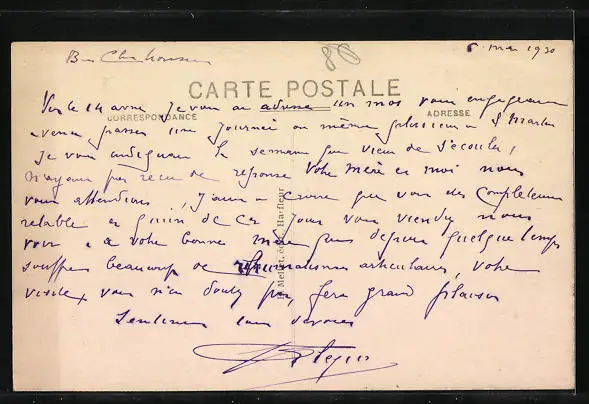 6 mai 1930
CARTE POSTALE
je vous ai adressé un mot vous engageant
CORRESPONDANCE
ADRESSE
a venir passer une journée ou même plusieurs a St Martin
Je vous indiquais la semaine qui vient de s'écouler,
N'ayant pas recu de réponse Votre Mère et moi nous
vous attendions, J'aime a croire que vous etes completement
retablie et qu'un de ces jours vous viendrez nous
voir, et Votre bonne mère qui depuis quelque temps
souffre beaucoup de rhumatismes articulaires, Votre
visite, vous n'en doutez pas, fera grand plaisir
Sentiments bien dévoués
édit. Harfleur